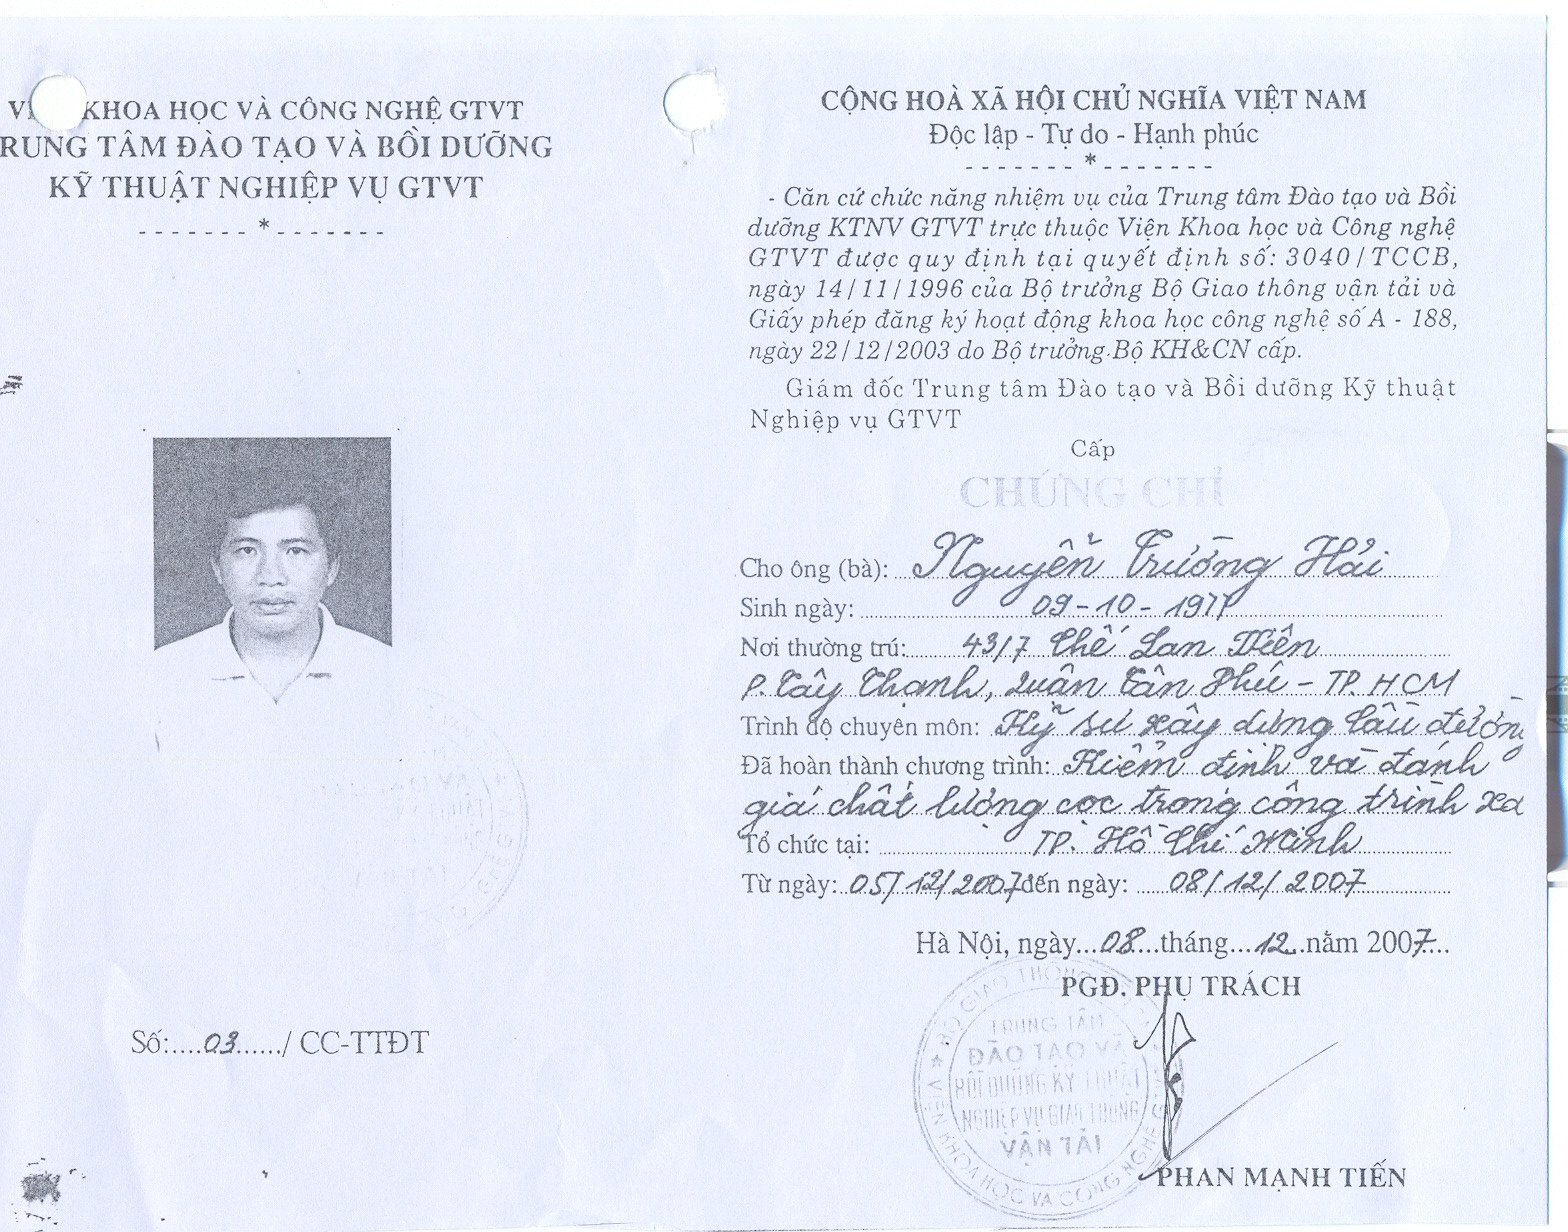 KHOA HỌC VÀ CÔNG NGHỆ GTVT
RUNG TÂM ĐÀO TẠO VÀ BỒI DƯỠNG
KỸ THUẬT NGHIỆP VỤ GTVT
-------*-------
Số:....03....../ CC-TTĐT
CỘNG HOÀ XÃ HỘI CHỦ NGHĨA VIỆT NAM
Độc lập - Tự do - Hạnh phúc
-------*-------
- Căn cứ chức năng nhiệm vụ của Trung tâm Đào tạo và Bồi
dưỡng KTNV GTVT trực thuộc Viện Khoa học và Công nghệ
GTVT được quy định tại quyết định số: 3040/TCCB,
ngày 14/11/1996 của Bộ trưởng Bộ Giao thông vận tải và
Giấy phép đăng ký hoạt động khoa học công nghệ số A - 188,
ngày 22/12/2003 do Bộ trưởng Bộ KH&CN cấp.
Giám đốc Trung tâm Đào tạo và Bồi dưỡng Kỹ thuật
Nghiệp vụ GTVT
Cấp
CHỨNG CHỈ
Cho ông (bà): Nguyễn Trường Hải
Sinh ngày: 09-10-1977
Nơi thường trú: 43/7 Chế Lan Viên
P. Tây Thạnh, Quận Tân Phú - TP. HCM
Trình độ chuyên môn: Kỹ sư xây dựng Cầu đường
Đã hoàn thành chương trình: Kiểm định và đánh
giá chất lượng cọc trong công trình xd
Tổ chức tại: TP. Hồ Chí Minh
Từ ngày: 05/12/2007 đến ngày: 08/12/2007
Hà Nội, ngày...08...tháng...12..năm 2007...
PGĐ. PHỤ TRÁCH
BỘ GIAO THÔNG
TRUNG TÂM
ĐÀO TẠO VÀ
BỒI DƯỠNG KỸ THUẬT
NGHIỆP VỤ GIAO THÔNG
VẬN TẢI
★ VIỆN KHOA HỌC VÀ CÔNG NGHỆ
PHAN MẠNH TIẾN